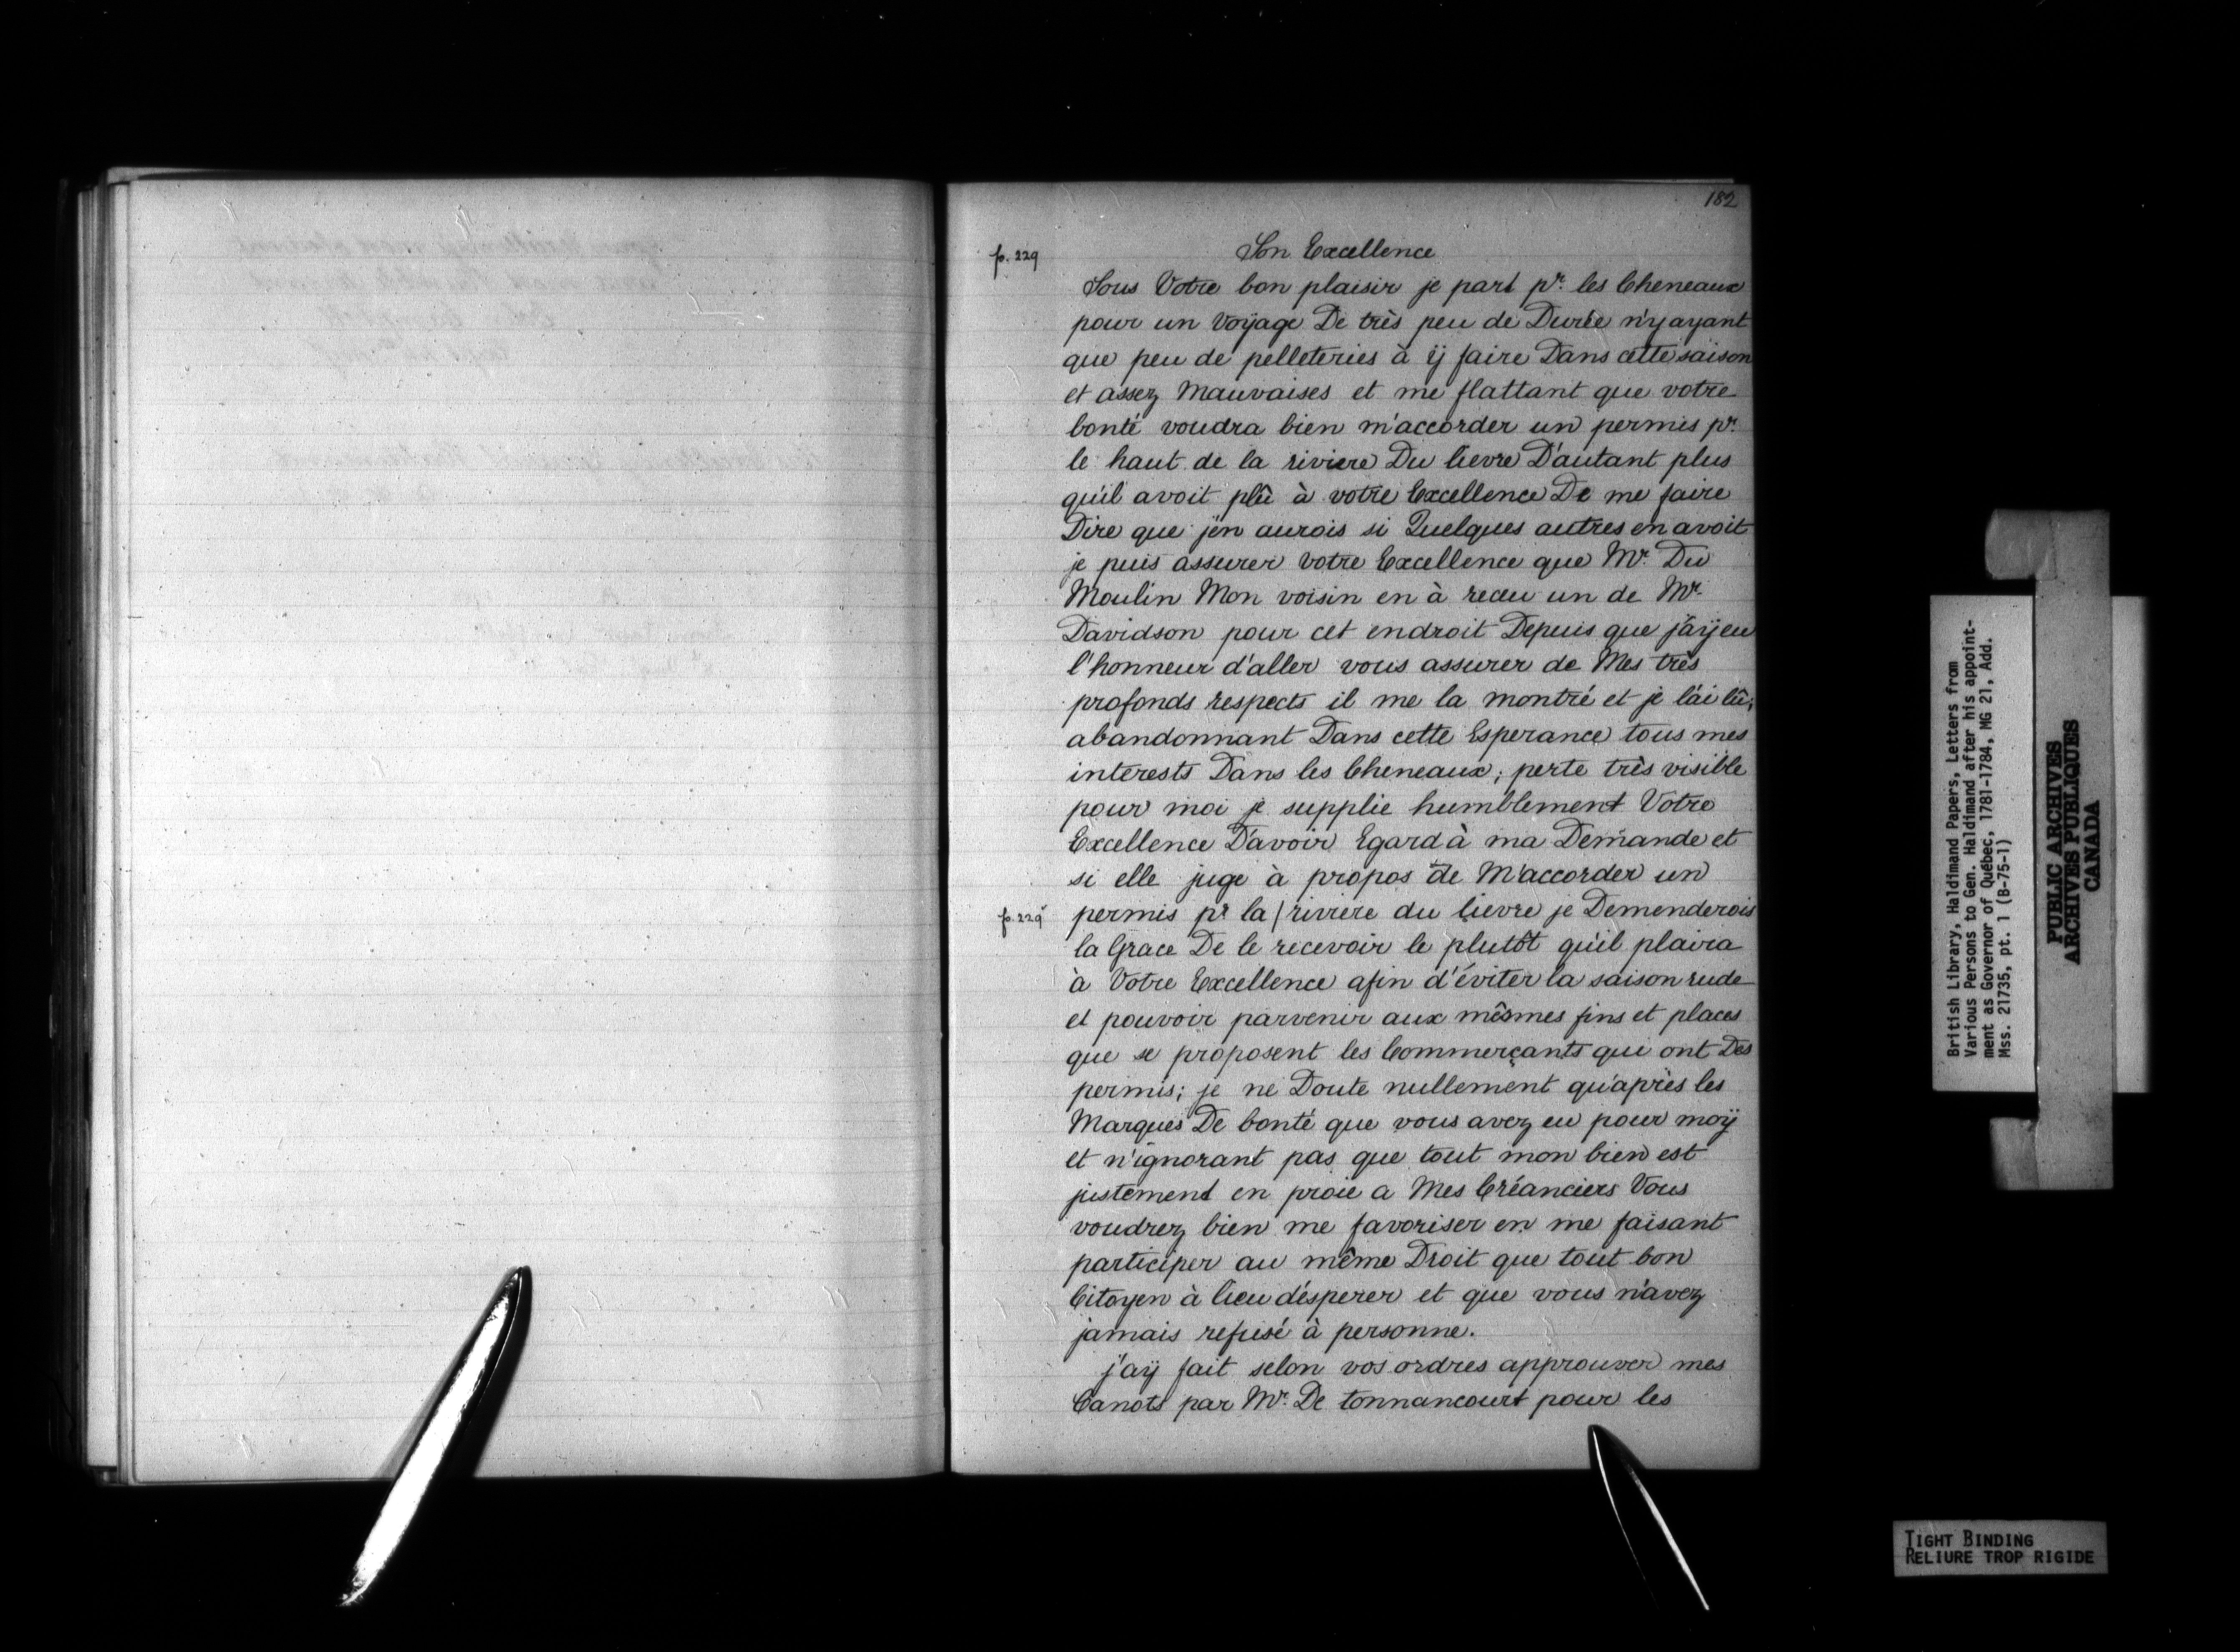 182
p. 229
Son Excellence
Sous Votre bon plaisir je part pr. les Cheneaux
pour un Voÿage De très peu de Durée n'y ayant
que peu de pelleteries à ÿ faire Dans cette saison
et assez Mauvaises et me flattant que votre
bonté voudra bien m'accorder un permis pr.
le haut de la riviere Du lievre D'autant plus
qu'il avoit plû à votre Excellence De me faire
Dire que j'en aurois si Quelques autres en avoit
je puis assurer votre Excellence que Mr. Du
Moulin Mon voisin en à receu un de Mr.
Davidson pour cet endroit Depuis que j'aÿ eu
l'honneur d'aller vous assurer de Mes très
profonds respects il me la montré et je l'ai lû;
abandonnant Dans cette Esperance tous mes
interests Dans les Cheneaux; perte très visible
pour moi je supplie humblement Votre
Excellence D'avoir Egard à ma Demande et
si elle juge à propos de M'accorder un
p. 229v permis pr la / riviere du lievre je Demenderois
la Grace De le recevoir le plutôt qu'il plaira
à Votre Excellence afin d'éviter la saison rude
et pouvoir parvenir aux mêsmes fins et places
que se proposent les Commerçants qui ont Des
permis; je ne Doute nullement qu'après les
Marques De bonté que vous avez eu pour moÿ
et n'ignorant pas que tout mon bien est
justement en proie a Mes Créanciers Vous
voudrez bien me favoriser en me faisant
participer au même Droit que tout bon
Citoyen à lieu d'ésperer et que vous n'avez
jamais refusé à personne.
j'aÿ fait selon vos ordres approuver mes
Canots par Mr. De tonnancourt pour les
British Library, Haldimand Papers, Letters from
Various Persons to Gen. Haldimand after his appoint-
ment as Governor of Québec, 1781-1784, MG 21, Add.
Mss. 21735, pt. 1 (B-75-1)
PUBLIC ARCHIVES
ARCHIVES PUBLIQUES
CANADA
TIGHT BINDING
RELIURE TROP RIGIDE